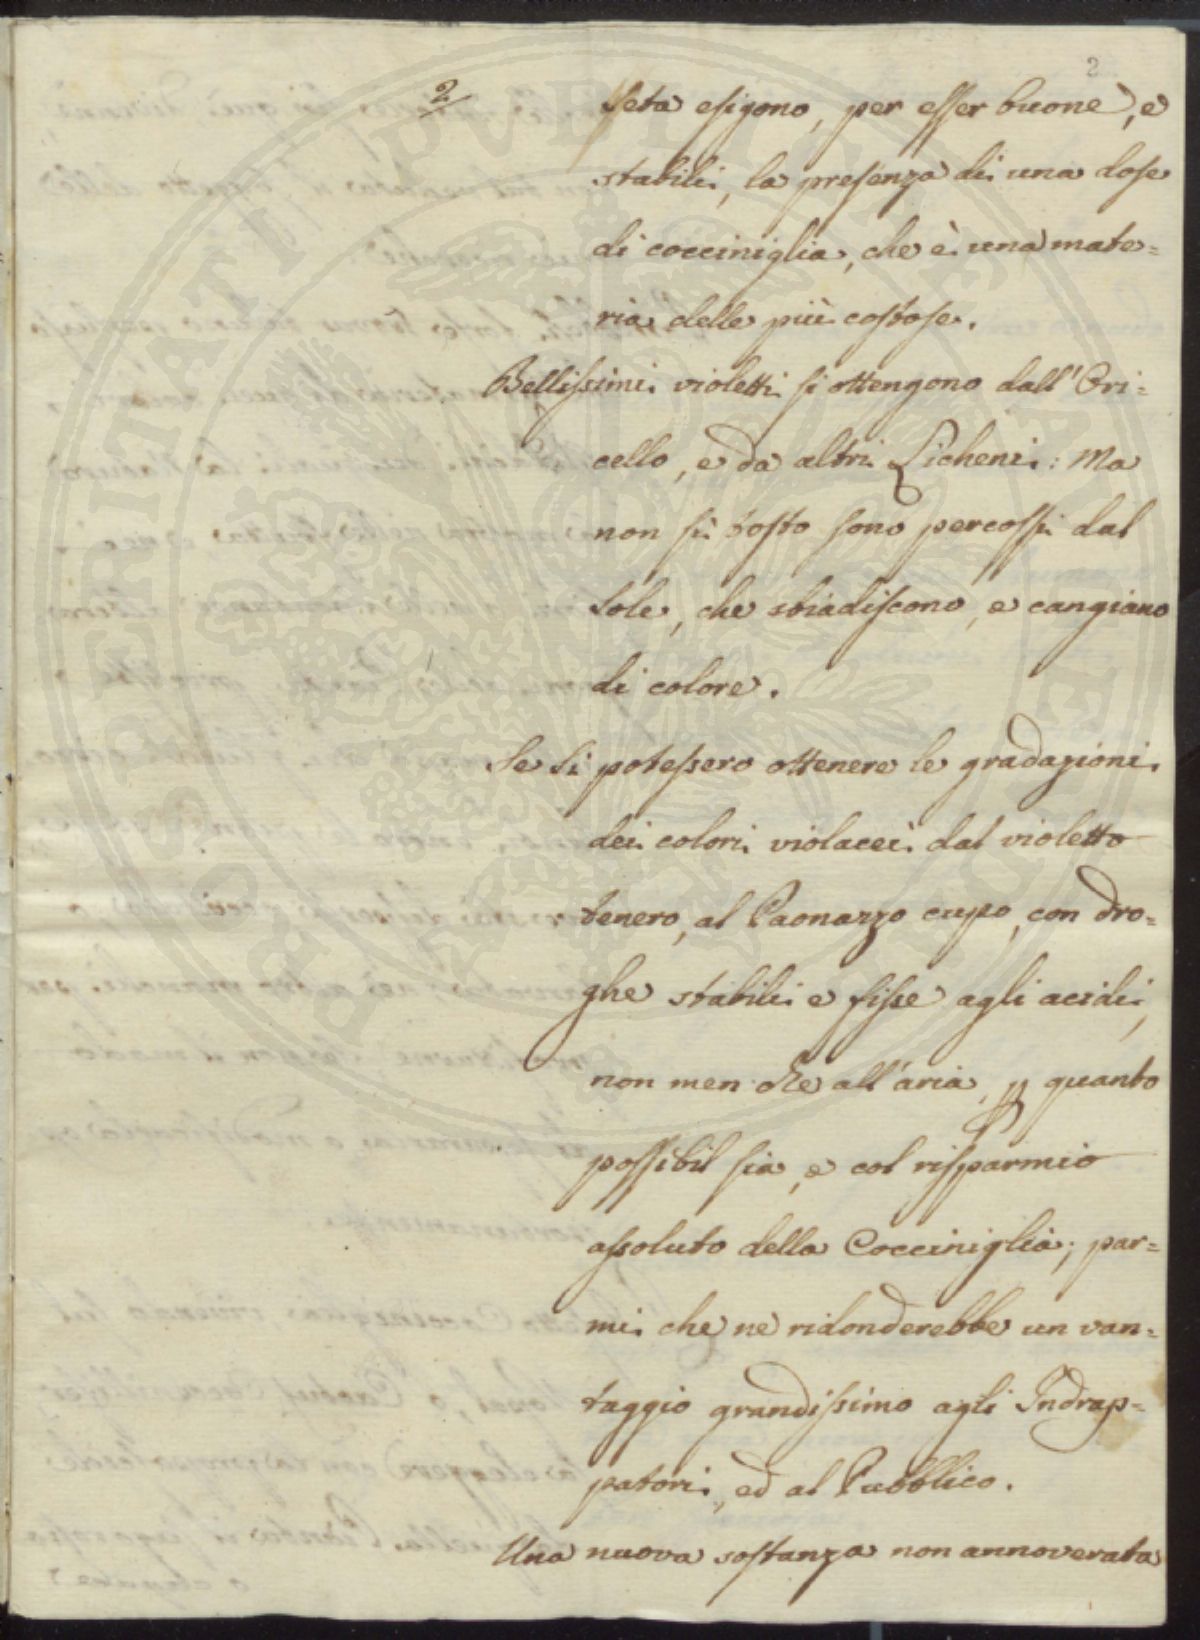 2
2
seta esigono, per esser buone, e
stabili, la presenza di una dose
di cocciniglia, che è una mate=
ria delle più costose.
Bellissimi violetti si ottengono dall'Ori=
cello, e da altri Licheni: Ma
non sì tosto sono percossi dal
sole, che sbiadiscono, e cangiano
di colore.
Se si potessero ottenere le gradazioni
dei colori violacei dal violetto
tenero, al Paonazzo cupo, con dro=
ghe stabili e fisse agli acidi,
non men che all'aria, quanto
possibil sia, e col risparmio
assoluto della Cocciniglia; par=
mi che ne ridonderebbe un van=
taggio grandissimo agli Indrap=
patori, ed al Pubblico.
Una nuova sostanza non annoverata
PROSPERITATI PVBLICAE AVGENDAE